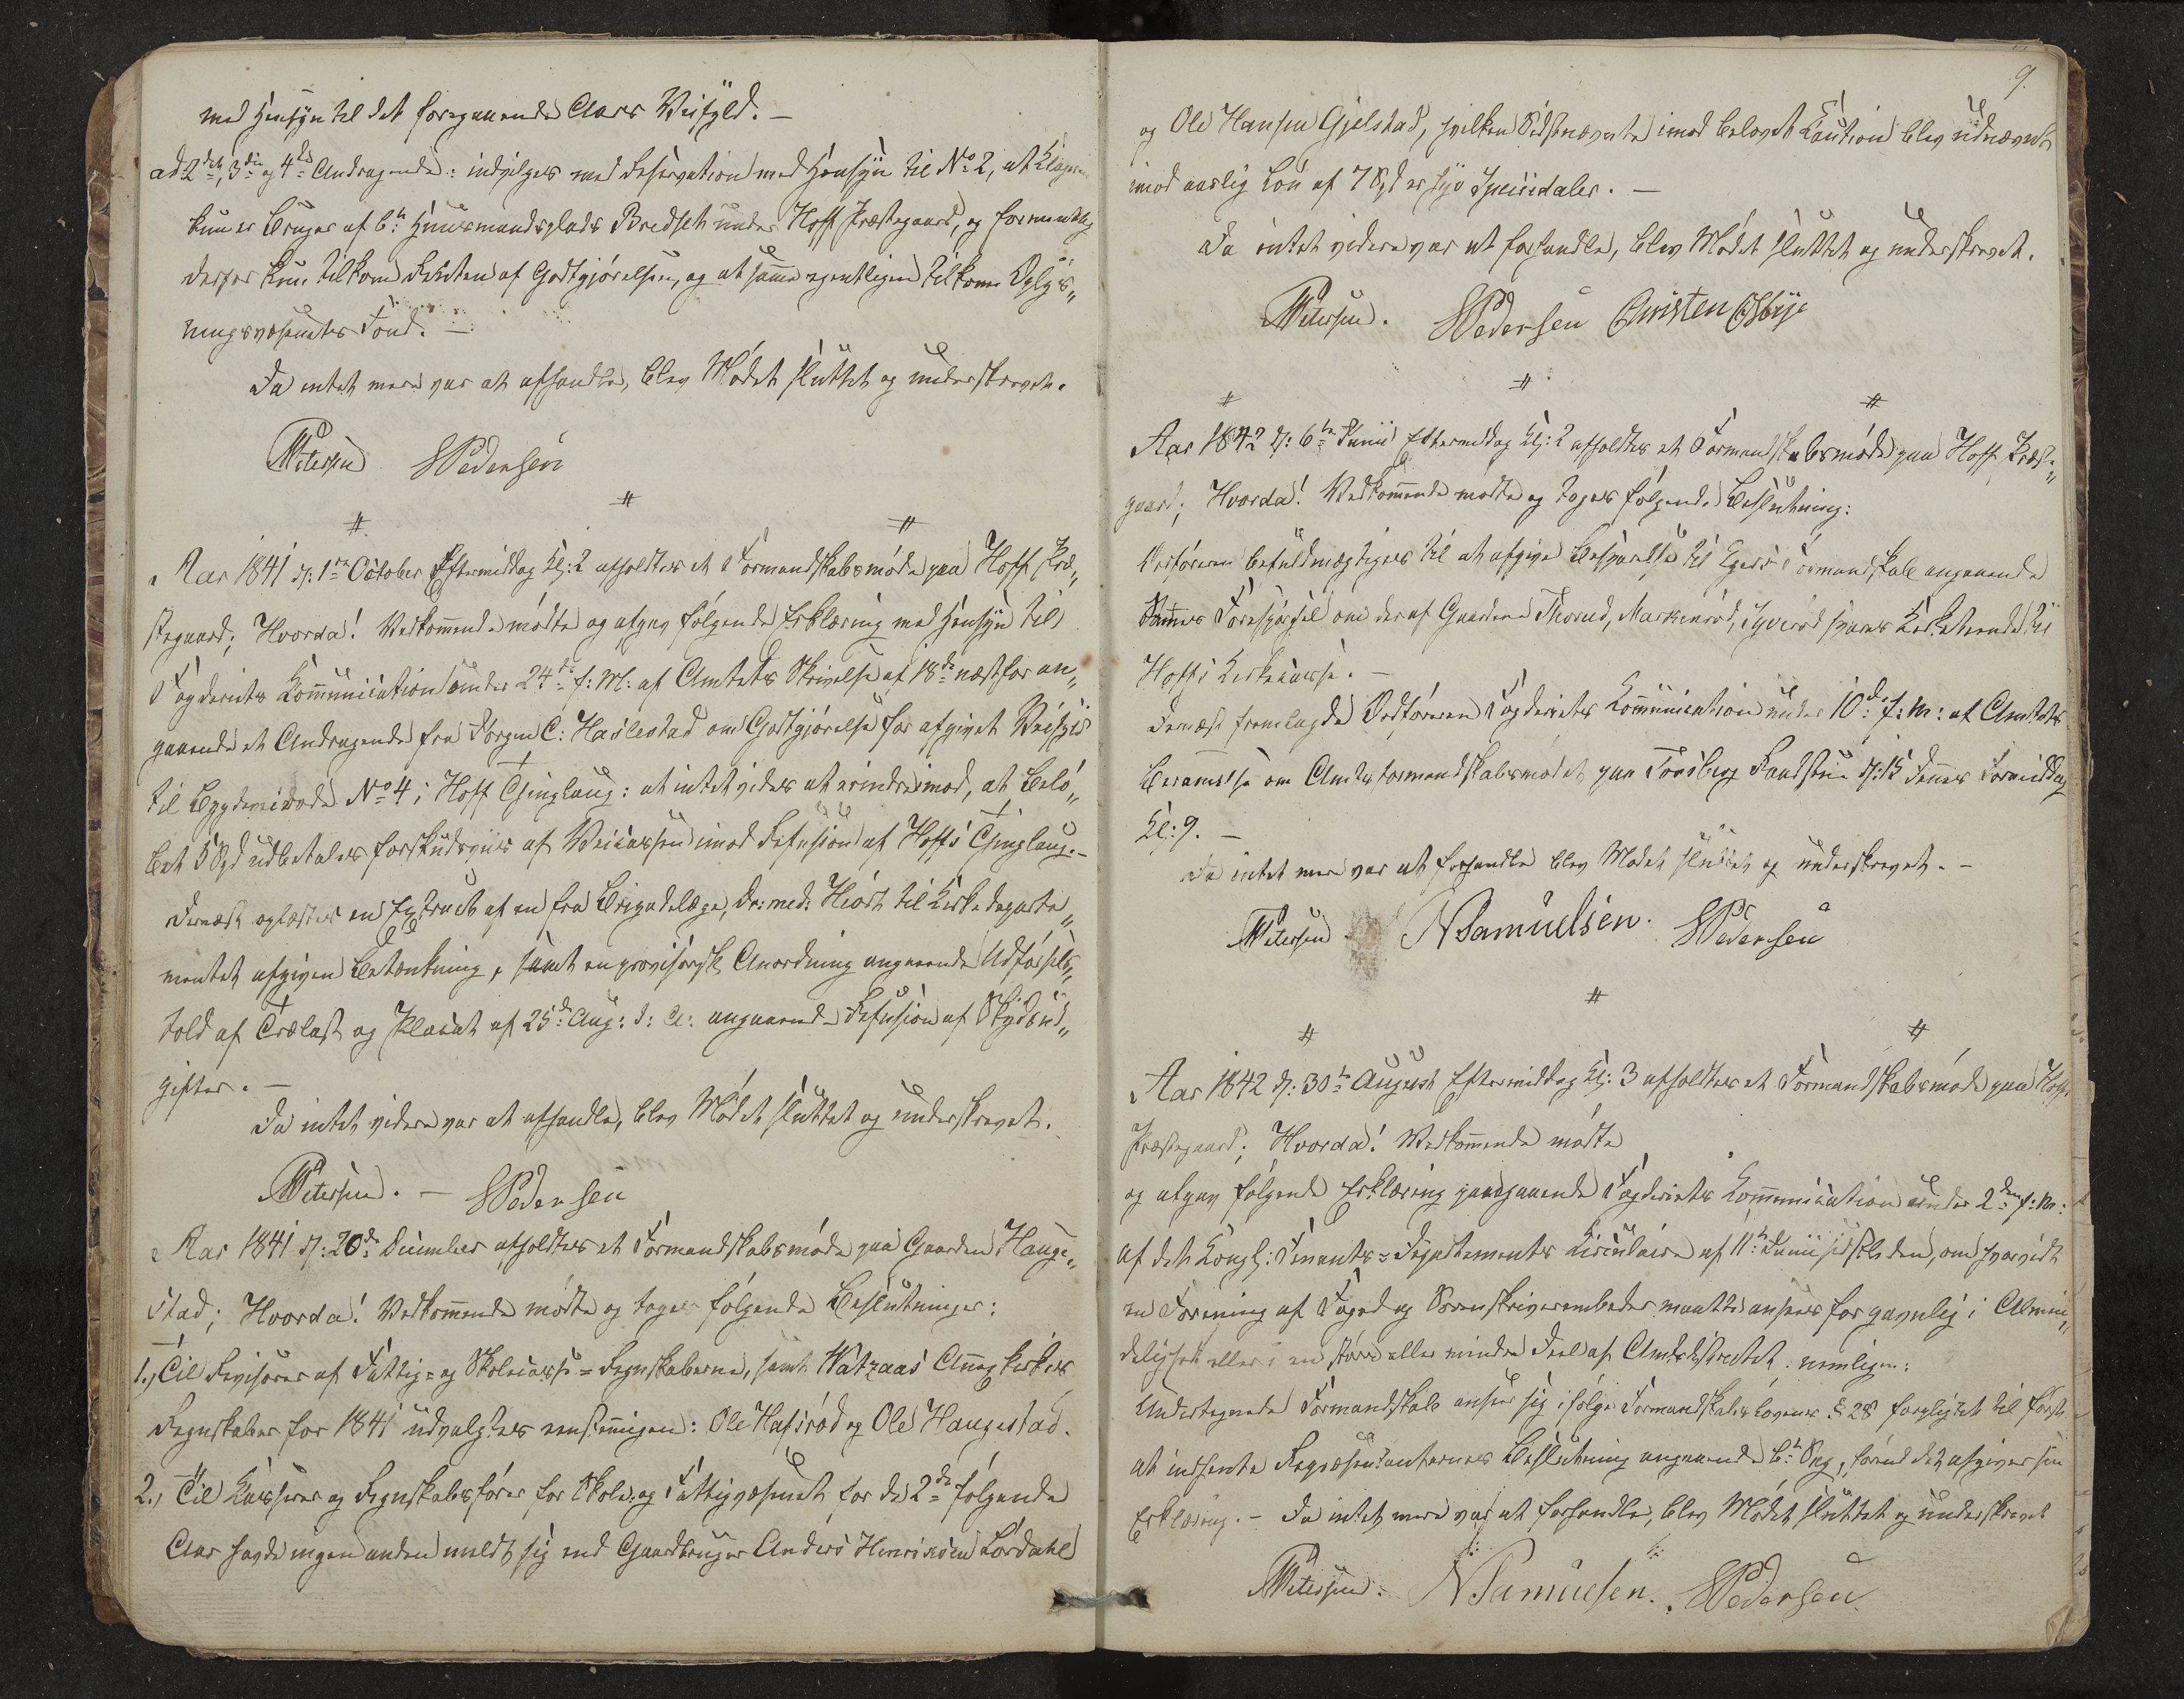 med Hensyn til det foregaaende Aars Veifyld. –
ad 2det, 3die og 4de Andragende: indvilges med Reservation med Hensyn til No 2, at Klageren
kun er Bruger af bte Huusmandsplads Bredsch under Hoff Præstegaard, og formentlig
derfor kun tilkom Resten af Godtgjørelsen, og at samme egentligen tilkom Oplys„
ningsvæsenets Fond. –
Da intet mere var at afhandle, blev Mødet sluttet og underskrevet.
Petersen HPedersen
# # #
Aar 1841 d: 1ste October Eftermiddag Kl: 2 afholdtes et Formandskabsmøde paa Hoff Præ„
stegaard; Hvorda! Vedkommende mødte og afgav følgende Erklæring med Hensyn til
Fogderiets Kommunication under 24de f: M: af Amtets Skrivelse af 18de næstfor an„
gaaende et Andragende fra Jørgen C: Haslestad om Godtgjørelse for afgivet Veifyld
til Bygdeveirode No 4 i Hoff Thinglaug: at intet vides at erindre imod, at Belø„
bet 5 Spd udbetales forskudsviis af Veicassen imod Refusion af Hoffs Thinglaug. –
Dernæst oplæstes en Extract af en fra Brigadelæge, Dr: med: Hiort til Kirkedeparte„
mentet afgiven Betænkning, samt en provisorisk Anordning angaaende Udførsels„
told af Trælast og Placat af 25de Aug: d: A: angaaende Refusion af Skydsud„
gifter. –
Da intet videre var at afhandle, blev Mødet sluttet og underskrevet.
Petersen. – HPedersen
Aar 1841 d: 20de December afholdtes et Formandskabsmøde paa Gaarden Hauge„
stad; Hvorda! Vedkommende mødte og toges følgende Beslutninger:
1., Til Revisorer af Fattig- og Skolecasse-Regnskaberne, samt Vatzaas Annexkirkes
Regnskaber for 1841 udvalgtes eenstemmigen: Ole Hafsrød og Ole Haugestad.
2., Til Kasserer og Regnskabsfører for Skole- og Fattigvæsenet for de 2de følgende
Aar havde ingen anden meldt sig end Gaardbruger Anders Henriksen Lørdahl
9.
og Ole Hansen Gjelstad, hvilken Sidstnævnte imod belovet Kaution blev udnævnt
imod aarlig Løn af 7 Spd er syv Speciedaler. –
Da intet videre var at forhandle, blev Mødet sluttet og underskrevet.
Petersen. HPedersen Christen Esbye
# # #
Aar 1842 d: 6te Junii Eftermiddag Kl: 2 afholdtes et Formandskabsmøde paa Hoff Præste„
gaard; Hvorda! Vedkommende mødte og toges følgende Beslutning:
Ordføreren befuldmægtiges til at afgive Besvarelse til Egers Formandskab angaaende
Sammes Forespørgsel om der af Gaardene Thorud, Markerød, Syverød svares Kirketiende til
Hoffs Kirkecasse. –
Dernæst fremlagde Ordføreren Fogderiets Kommunication under 10de f: M: af Amtets
Berammelse om Amtsformandskabsmødet paa Tønsberg Raadstue d: 15 dennes Formiddag
Kl: 9. –
Da intet mere var at forhandle blev Mødet sluttet og underskrevet. –
Petersen. NSamuelsen. HPedersen
# # #
Aar 1842 d: 30te August Eftermiddag Kl: 3 afholdtes et Formandskabsmøde paa Hoff
Præstegaard; Hvorda! Vedkommende mødte
og afgav følgende Erklæring paa angaaende Fogderiets Kommunication under 2den f: M:
af det Kongl: Finants-Departements Circulaire af 11te Junii sidstleden, om hvorvidt
en Forening af Foged og Sorenskriverembeder maatte ansees for gavnlig i Almin„
delighed eller i en større eller mindre Deel af Amtsdistrictet. nemligen:
Undertegnede Formandskab anseer sig ifølge Formandskabslovens § 28 forpligtet til først
at indhente Repræsentanternes Beslutning angaaende bte Sag, førend det afgiver sin
Erklæring. – Da intet mere var at forhandle, blev Mødet sluttet og underskrevet
Petersen. NSamuelsen. HPedersen.